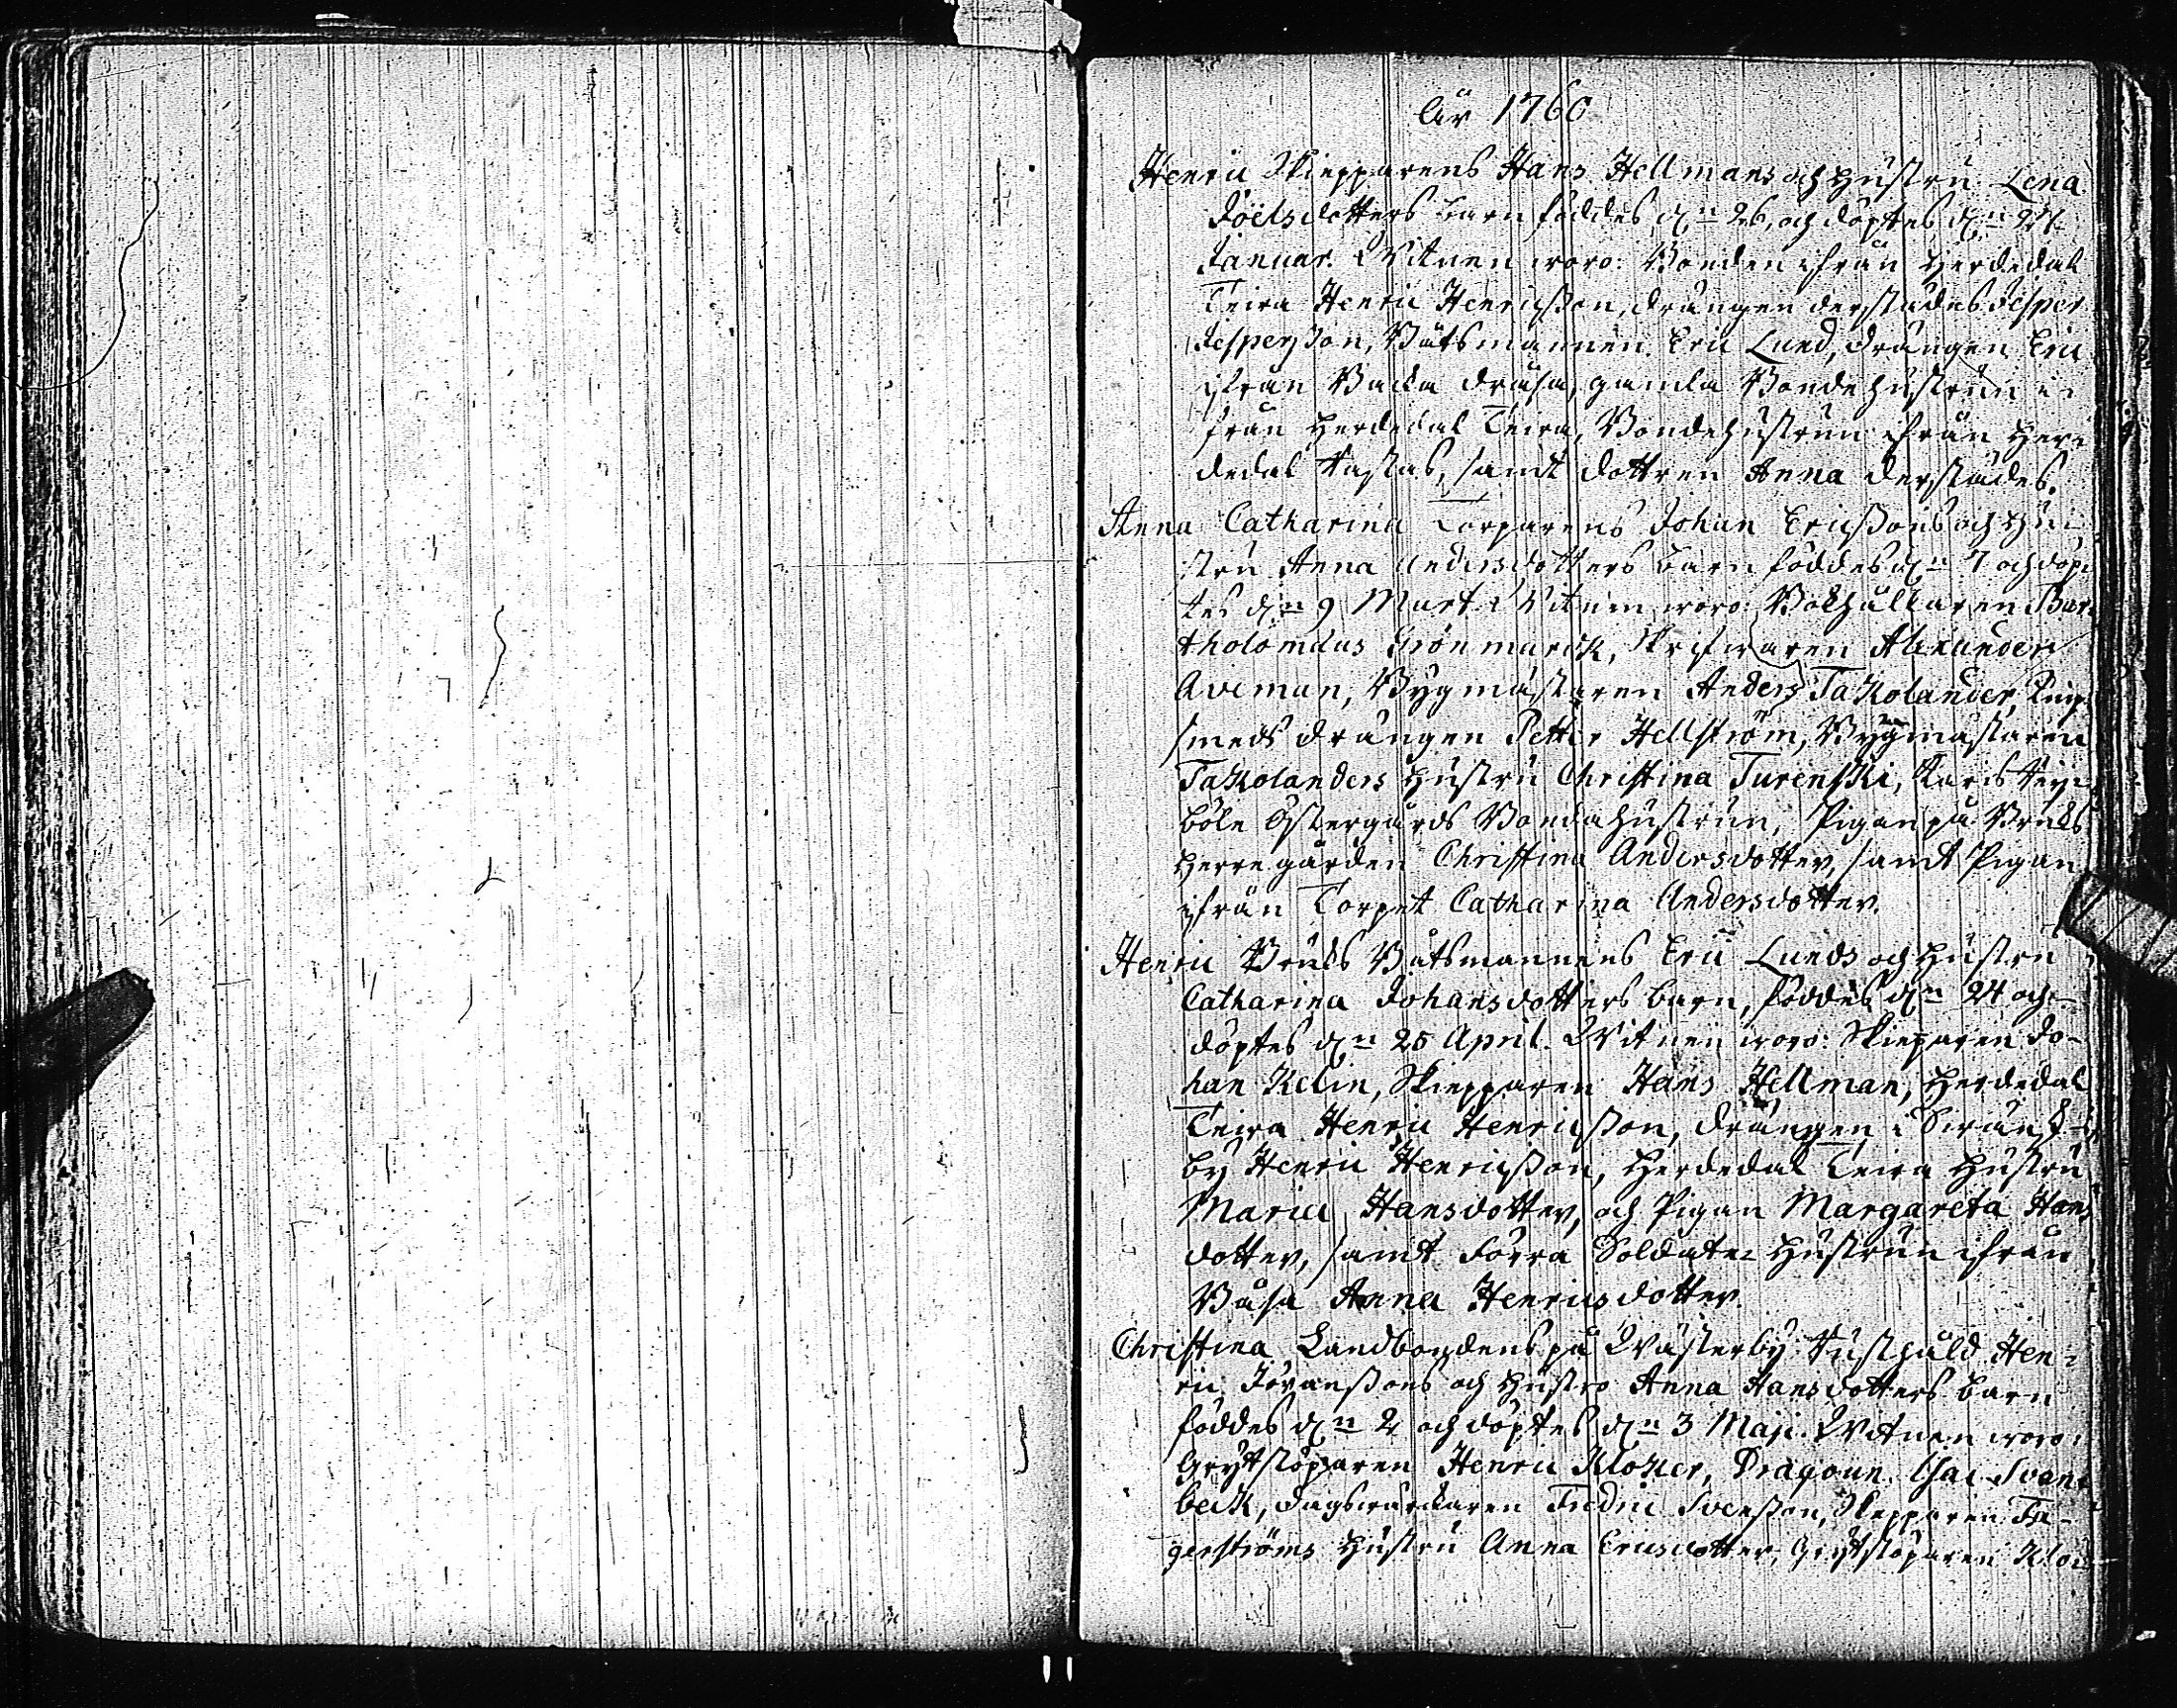 åhr 1760
Henric Skiepparens Hans Hellmans och hustru Lena
Joelsdotters barn föddes dn 26, och döptes dn 27
Januar. Witnen woro: Bonden ifrån Herdedal
Teira Henric Henricßon, drängen derstädes Jesper
Jesperßon, Båtsmannen Eric Lund, drängen Eric
ifrån Backa dräsa, gamla Bondehustrun i-
från Herdedal Teira, Bondehustrun ifrån Her-
dedal Rastas, samt dottren Anna derstädes.
Anna Catharina Torparens Johan Ericßons och hu-
stru Anna Andersdotters barn föddes dn 7 och döp-
tes dn 9 Mart. Witnen woro: Bokhållaren Bar-
tholomæus Grönmarck, Skrifwaren Alexander
Aveman, Bygmästaren Anders Takolander,
smeds drängen Petter Hellström, Bygmästaren
Takolanders hustru Christina Turenski, Karis
böle Östergårds Bondahustrun, Pigan på Bruks
Herregården Christina Andersdotter, samt Pigan
ifrån Torpet Catharina Andersdotter.
Henric Bruks Båtsmannens Eric Lunds och hustru
Catharina Johansdotters barn, föddes dn 24 och
döptes dn 25 April. Witnen woro: Skieparen Jo-
han Kelin, Skiepparen Hans Hellman, Herdedal
Teira Henric Henricßon, drängen i
by Henric Henricßon, Herdedal Teira hustru
Maria Hansdotter, och Pigan Margareta Hans
dotter, samt förra Soldate hustrun ifrån
Båsa Anna Henricsdotter.
Christina Landbondens på Wästerby Rusthåld Hen-
ric Jöranßons och hustro Anna Hansdotters barn
föddes dn 2 och döptes dn 3 Maji. Witnen woro:
Grytstöparen Henric Klöker, Dragoun Isac Svan-
beck, dagswärckaren Fredric Svenßon, Skepparen Fa-
gerströms hustru Anna Ericsdotter, Grytstöparen Klö-